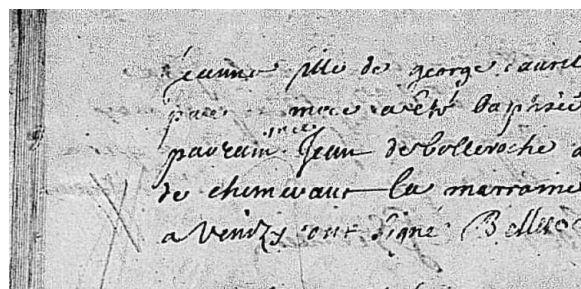 jeanne fille de george auril
par moÿ a été baptisée
parrain Jean debelleroche
de chemevaux la marraine
a Vendzy ont signé Belle